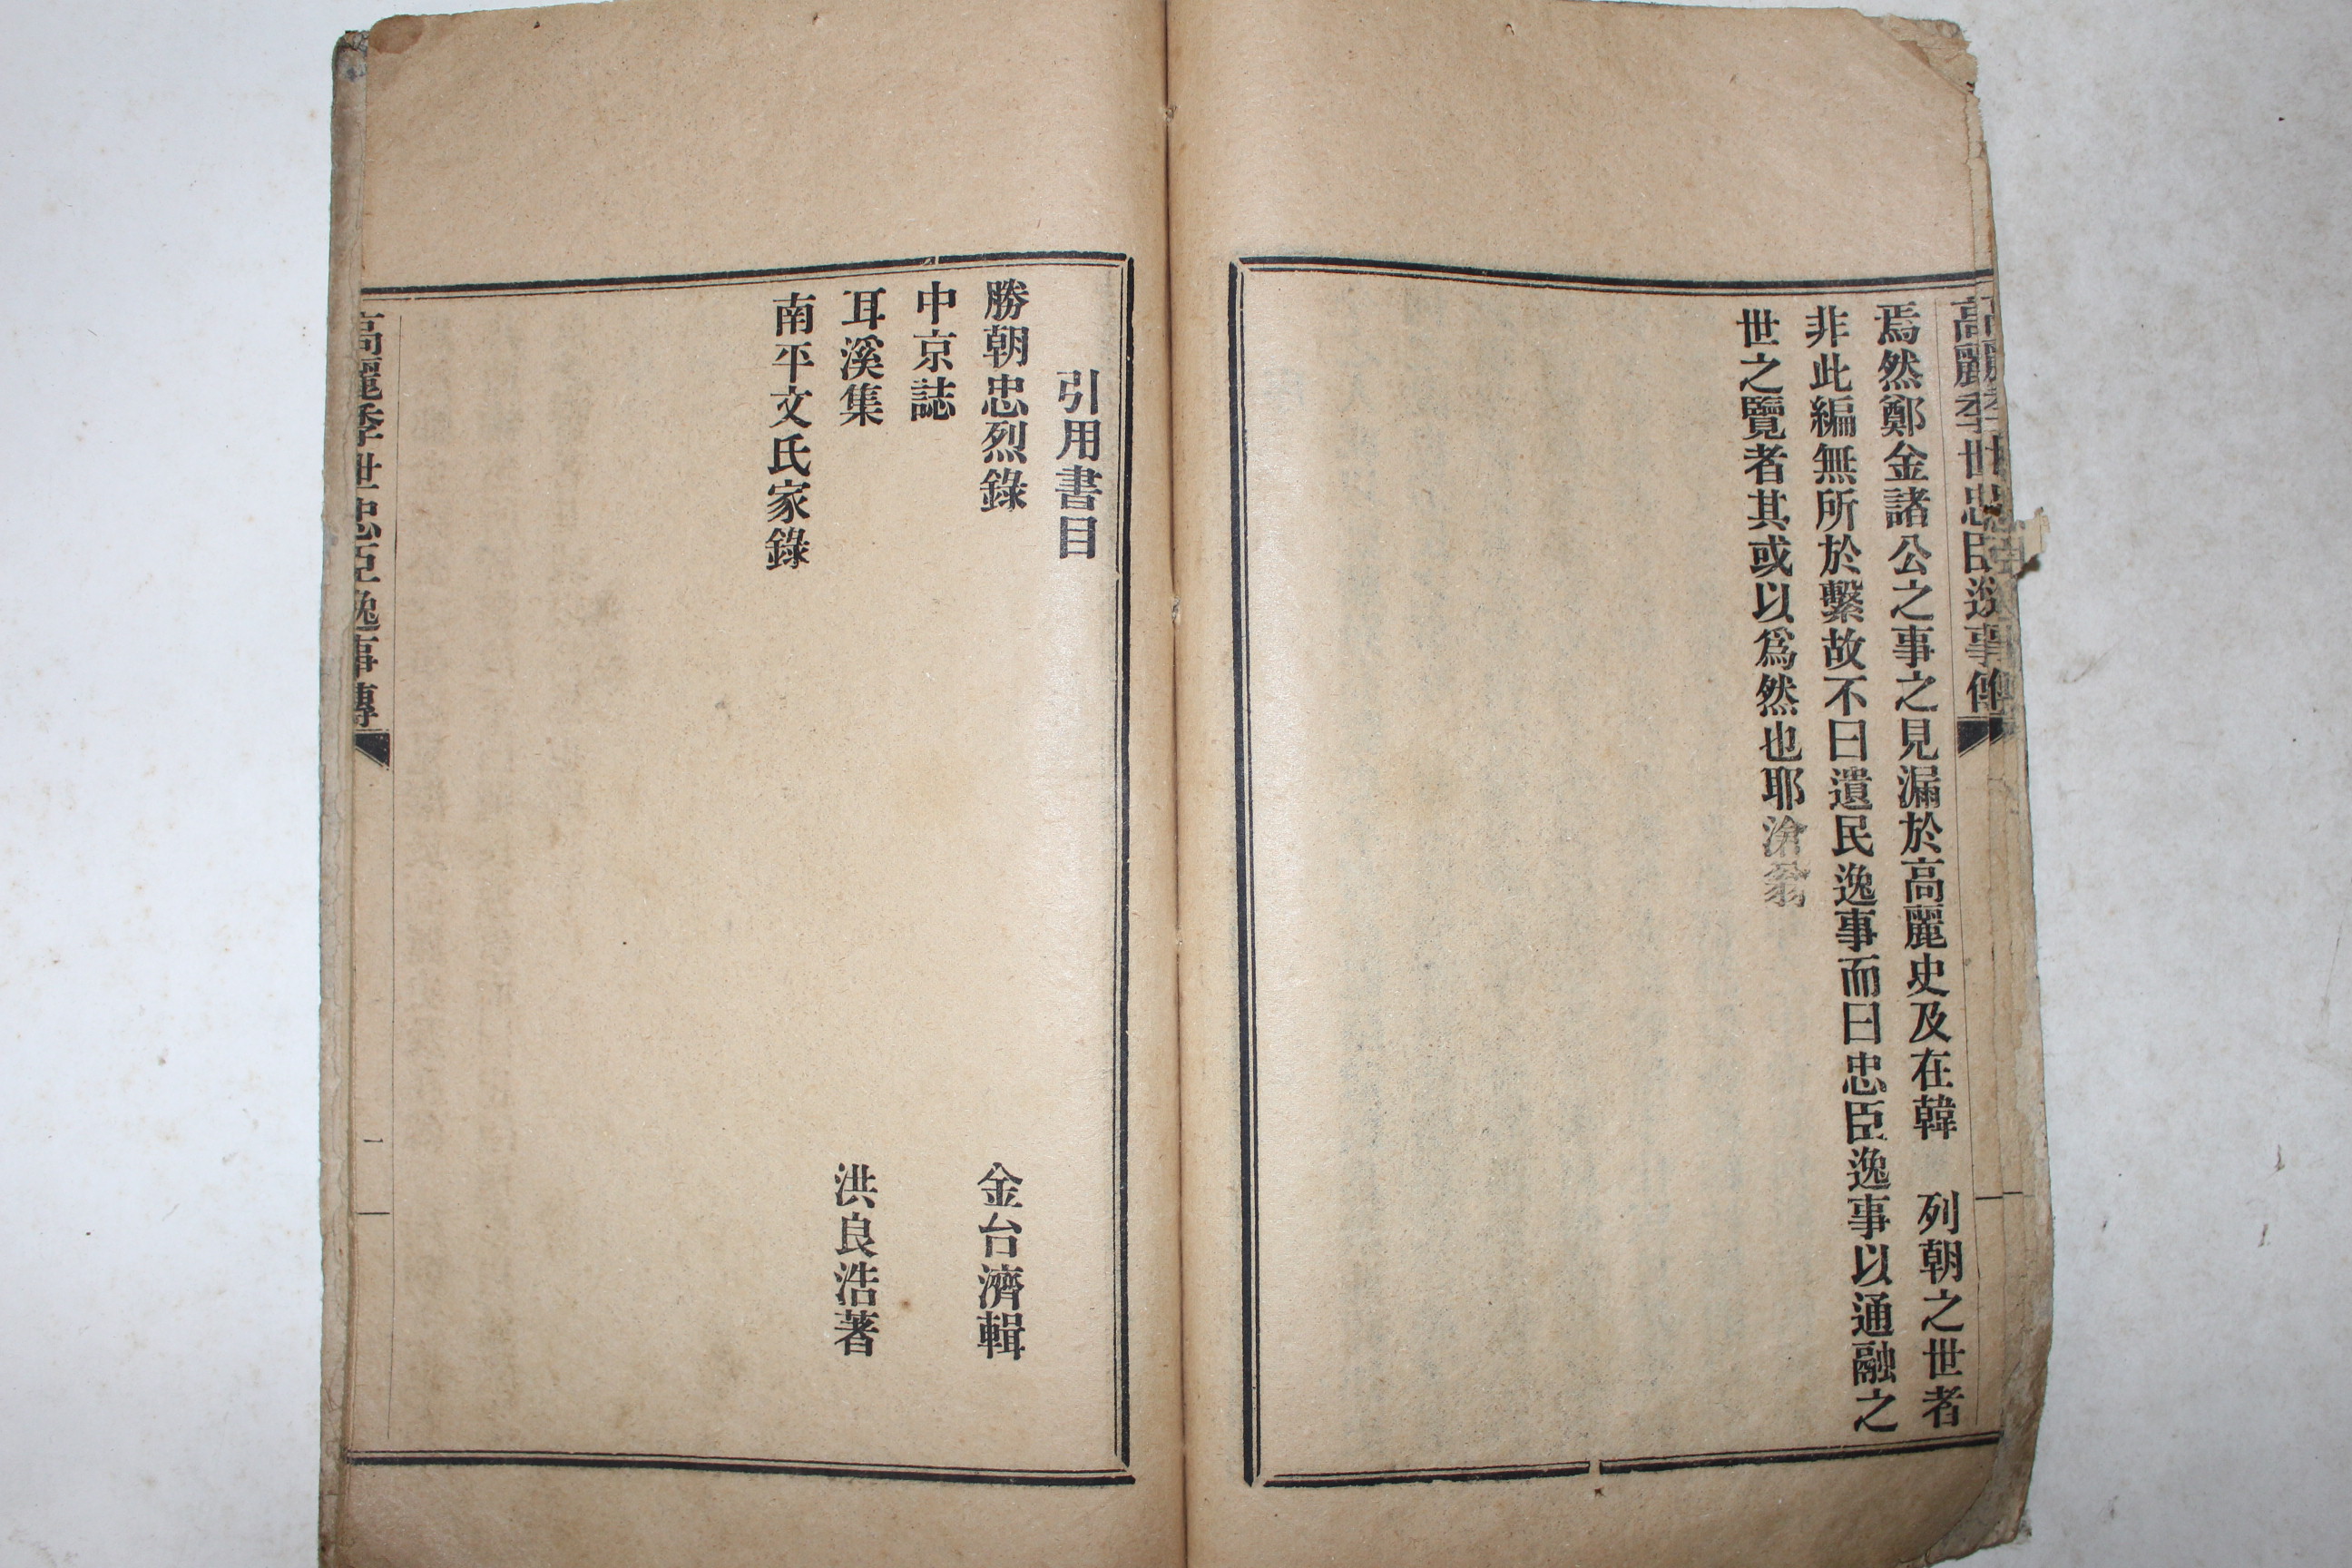 高麗季世忠臣逸事傳
焉然鄭金諸公之事之見漏於高麗史及在韓　列朝之世者
非此編無所於繫故不曰遺民逸事而曰忠臣逸事以通融之
世之覽者其或以爲然也耶滄翁
引用書目
勝朝忠烈錄　金台濟輯
中京誌
耳溪集　洪良浩著
南平文氏家錄
高麗季世忠臣逸事傳
一